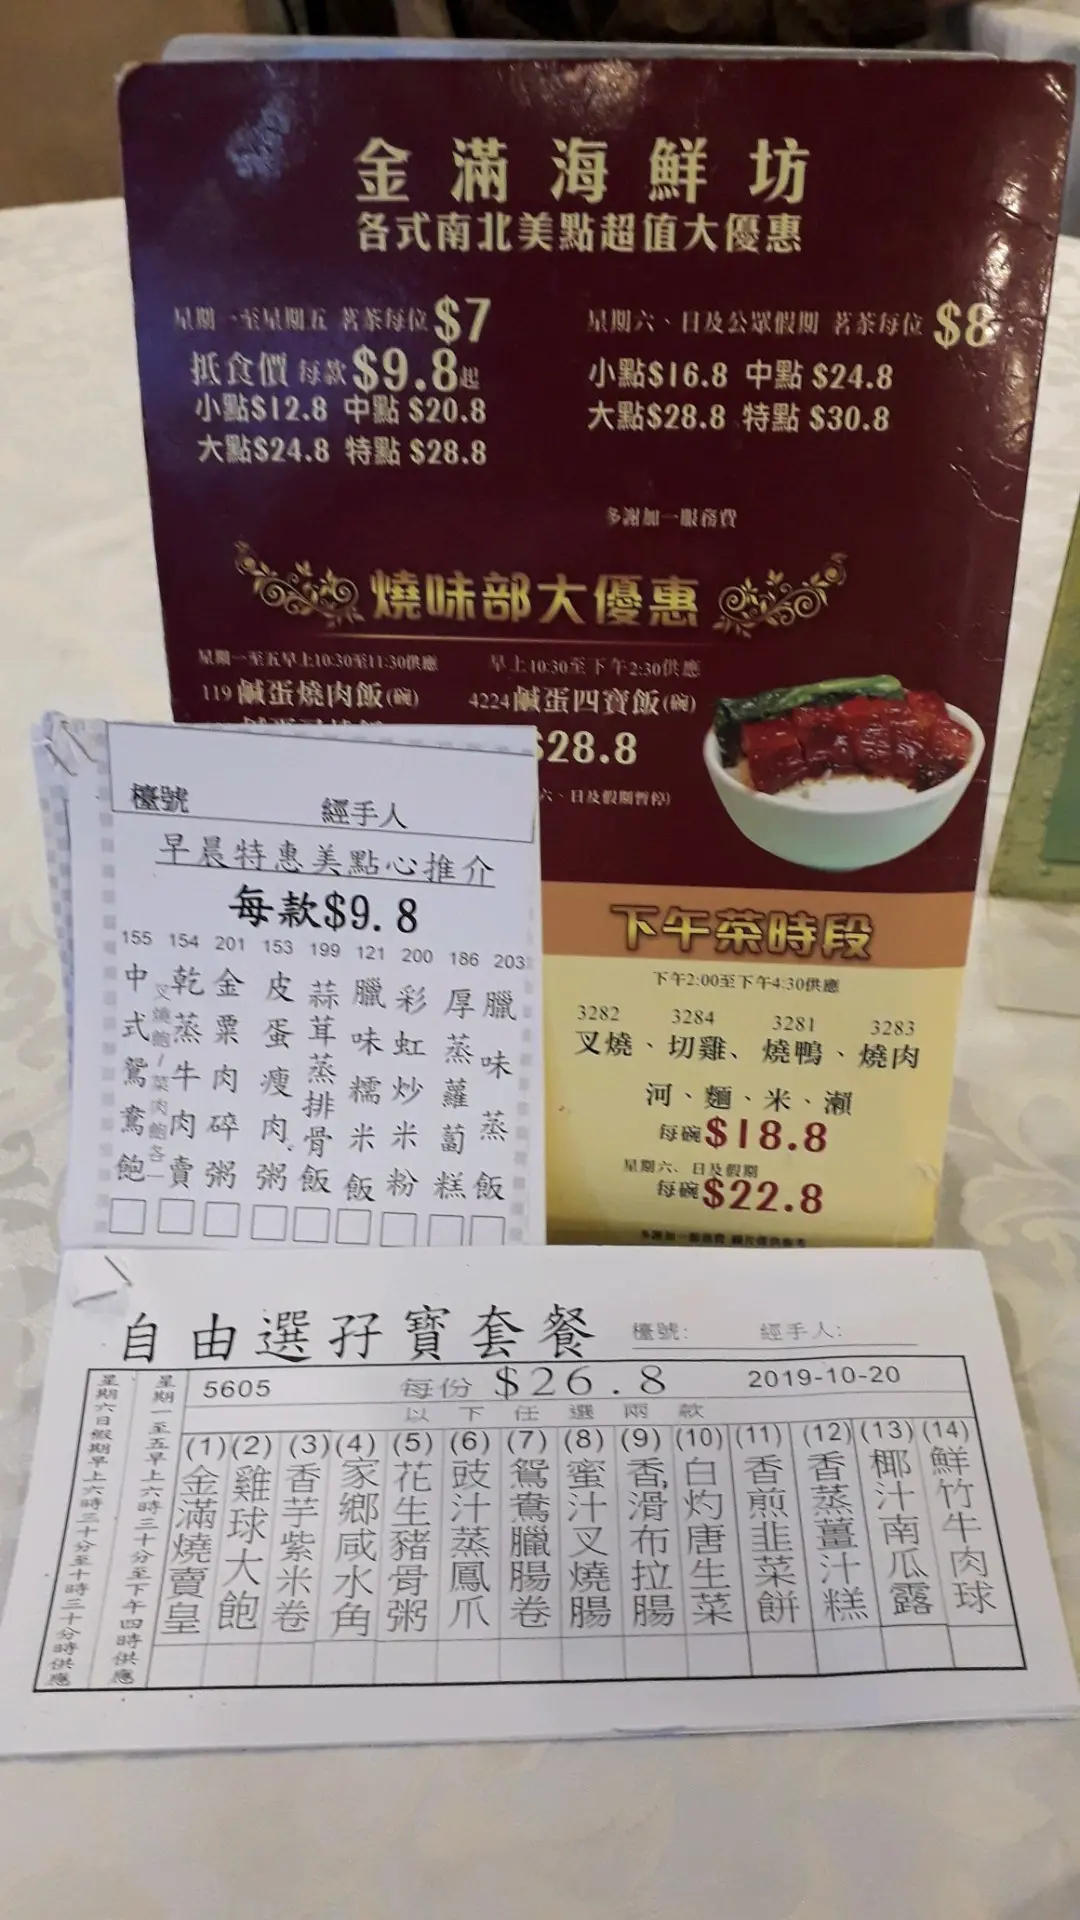 金滿海鮮坊
各式南北美點超值大優惠
星期一至星期五 茗茶每位$7
抵食價 每款$9.8起
小點$12.8 中點$20.8
大點$24.8 特點$28.8
星期六、日及公眾假期 茗茶每位$8
小點$16.8 中點$24.8
大點$28.8 特點$30.8
多謝加一服務費
燒味部大優惠
星期一至五早上10:30至11:30供應
119鹹蛋燒肉飯(碗)
早上10:30至下午2:30供應
4224鹹蛋四寶飯(碗)
$28.8
六、日及假期暫停)
下午茶時段
下午2:00至下午4:30供應
3282 3284 3281 3283
叉燒、切雞、燒鴨、燒肉
河、麵、米、瀨
每碗$18.8
星期六、日及假期
每碗$22.8
檯號 經手人
早晨特惠美點心推介
每款$9.8
155 中式鴛鴦飽
叉燒飽/菜肉飽各一
154 乾蒸牛肉賣
201 金粟肉碎粥
153 皮蛋瘦肉粥
199 蒜茸蒸排骨飯
121 臘味糯米飯
200 彩虹炒米粉
186 厚蒸蘿蔔糕
203 臘味蒸飯
自由選孖寶套餐 檯號: 經手人:
星期六日假期早上六時三十分至十時三十分時供應
星期一至五早上六時三十分至下午四時供應
5605 每份 $26.8 2019-10-20
以下任選兩款
(1)金滿燒賣皇
(2)雞球大飽
(3)香芋紫米卷
(4)家鄉咸水角
(5)花生豬骨粥
(6)豉汁蒸鳳爪
(7)鴛鴦臘腸卷
(8)蜜汁叉燒腸
(9)香滑布拉腸
(10)白灼唐生菜
(11)香煎韭菜餅
(12)香蒸薑汁糕
(13)椰汁南瓜露
(14)鮮竹牛肉球